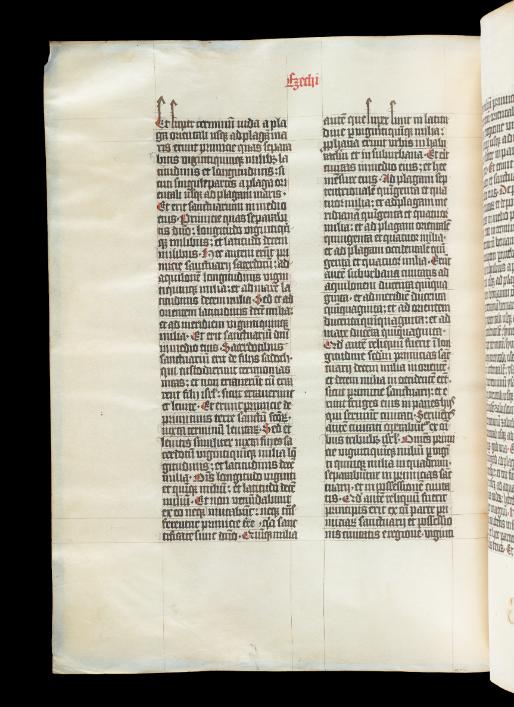 Ezechi
Et super terminū iuda a pla
ga orientali usq̄ ad plagā ma
ris erunt primicie quas separa
bitis viginti quinq̄ milibꝫ la
titudinis et longitudinis: si
cut singule partes a plaga ori
entali usq̄ ad plagam maris.
Et erit sanctuarium in medio
eius. Primicie quas separabi
tis dn̄o: longitudo viginti qn̄
qꝫ milibus: et latitudo decem
milibus. Hee autem erūt pri
micie sanctuarii sacerdotū: ad
aquilonem longitudinis vigin
ti quinqꝫ milia: et ad mare la
titudinis decem milia. Sed et ad
orientem latitudinis decē milia:
et ad meridiem viginti quinqꝫ
milia. Et erit sanctuariū dn̄i
in medio eius. Sacerdotibus
sanctuarium erit de filiis sadoch:
qui custodierunt cerimonias
meas: et non erraverunt cū erra
rent filii isrl̄: sicut erraverunt
et levite. Et erunt primicie de
primiciis terre sanctū sctōꝝ:
iuxta terminū levitaꝝ. Sed et
levitis similiter iuxta fines sa
cerdotū viginti quinqꝫ milia lō
gitudinis: et latitudinis decē
milia. Ois longitudo viginti
et quiqꝫ miliū: et latitudo decē
milium. Et non venūdabunt
ex eo neqꝫ mutabūt: neqꝫ trās
ferentur primicie tr̄e: q̄a sanc
tificate sunt dn̄o. Quiqꝫ milia
autē que supersunt in latitu
dine ꝑ viginti quiqꝫ milia:
ꝓphana erunt urbis in habi
taclm̄ et in suburbana. Et erit
civitas in medio eius: et hee
mēsure eius. Ad plagam sep
tentrionalē qn̄genta et qua
tuor milia: et ad plagam me
ridianā qn̄genta et quatuor
milia: et ad plagam orientalē
quingenta et quatuor milia:
et ad plagam occidentalē quī
genta et quatuor milia. Erūt
autē suburbana civitatis ad
aquilonem ducenta quiqua
ginta: et ad meridiē ducenta
quiquaginta: et ad orientem
ducenta quiquaginta: et ad
mare ducenta quiquaginta.
Qd autē reliquū fuerit i lon
gitudine scdm̄ primicias sanc
tuarii decem milia in orientē:
et decem milia in occidentē erūt
sicut primicie sanctuarii: et e
runt fruges eius in panes hiis
qui serviunt civitati. Servietes
autē civitati opabuntur ex oi
bus tribubꝫ isrl̄. Omnes primi
cie viginti quiqꝫ miliū ꝑ vigī
ti quinqꝫ milia in quadrum
separabuntur in primicias sāc
tuarii: et in possessionē civita
tis. Qd autē reliquū fuerit
principis erit ex oī parte pri
miciaꝝ sanctuarii et possessio
nis civitatis e regione viginti